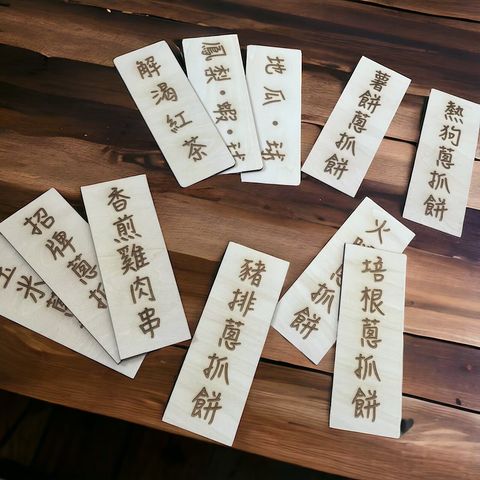 解渴紅茶
鳳梨・蝦・
地瓜・
薯餅蔥抓餅
熱狗蔥抓餅
玉米蔥
招牌蔥抓
香煎雞肉串
豬排蔥抓餅
火抓餅
培根蔥抓餅